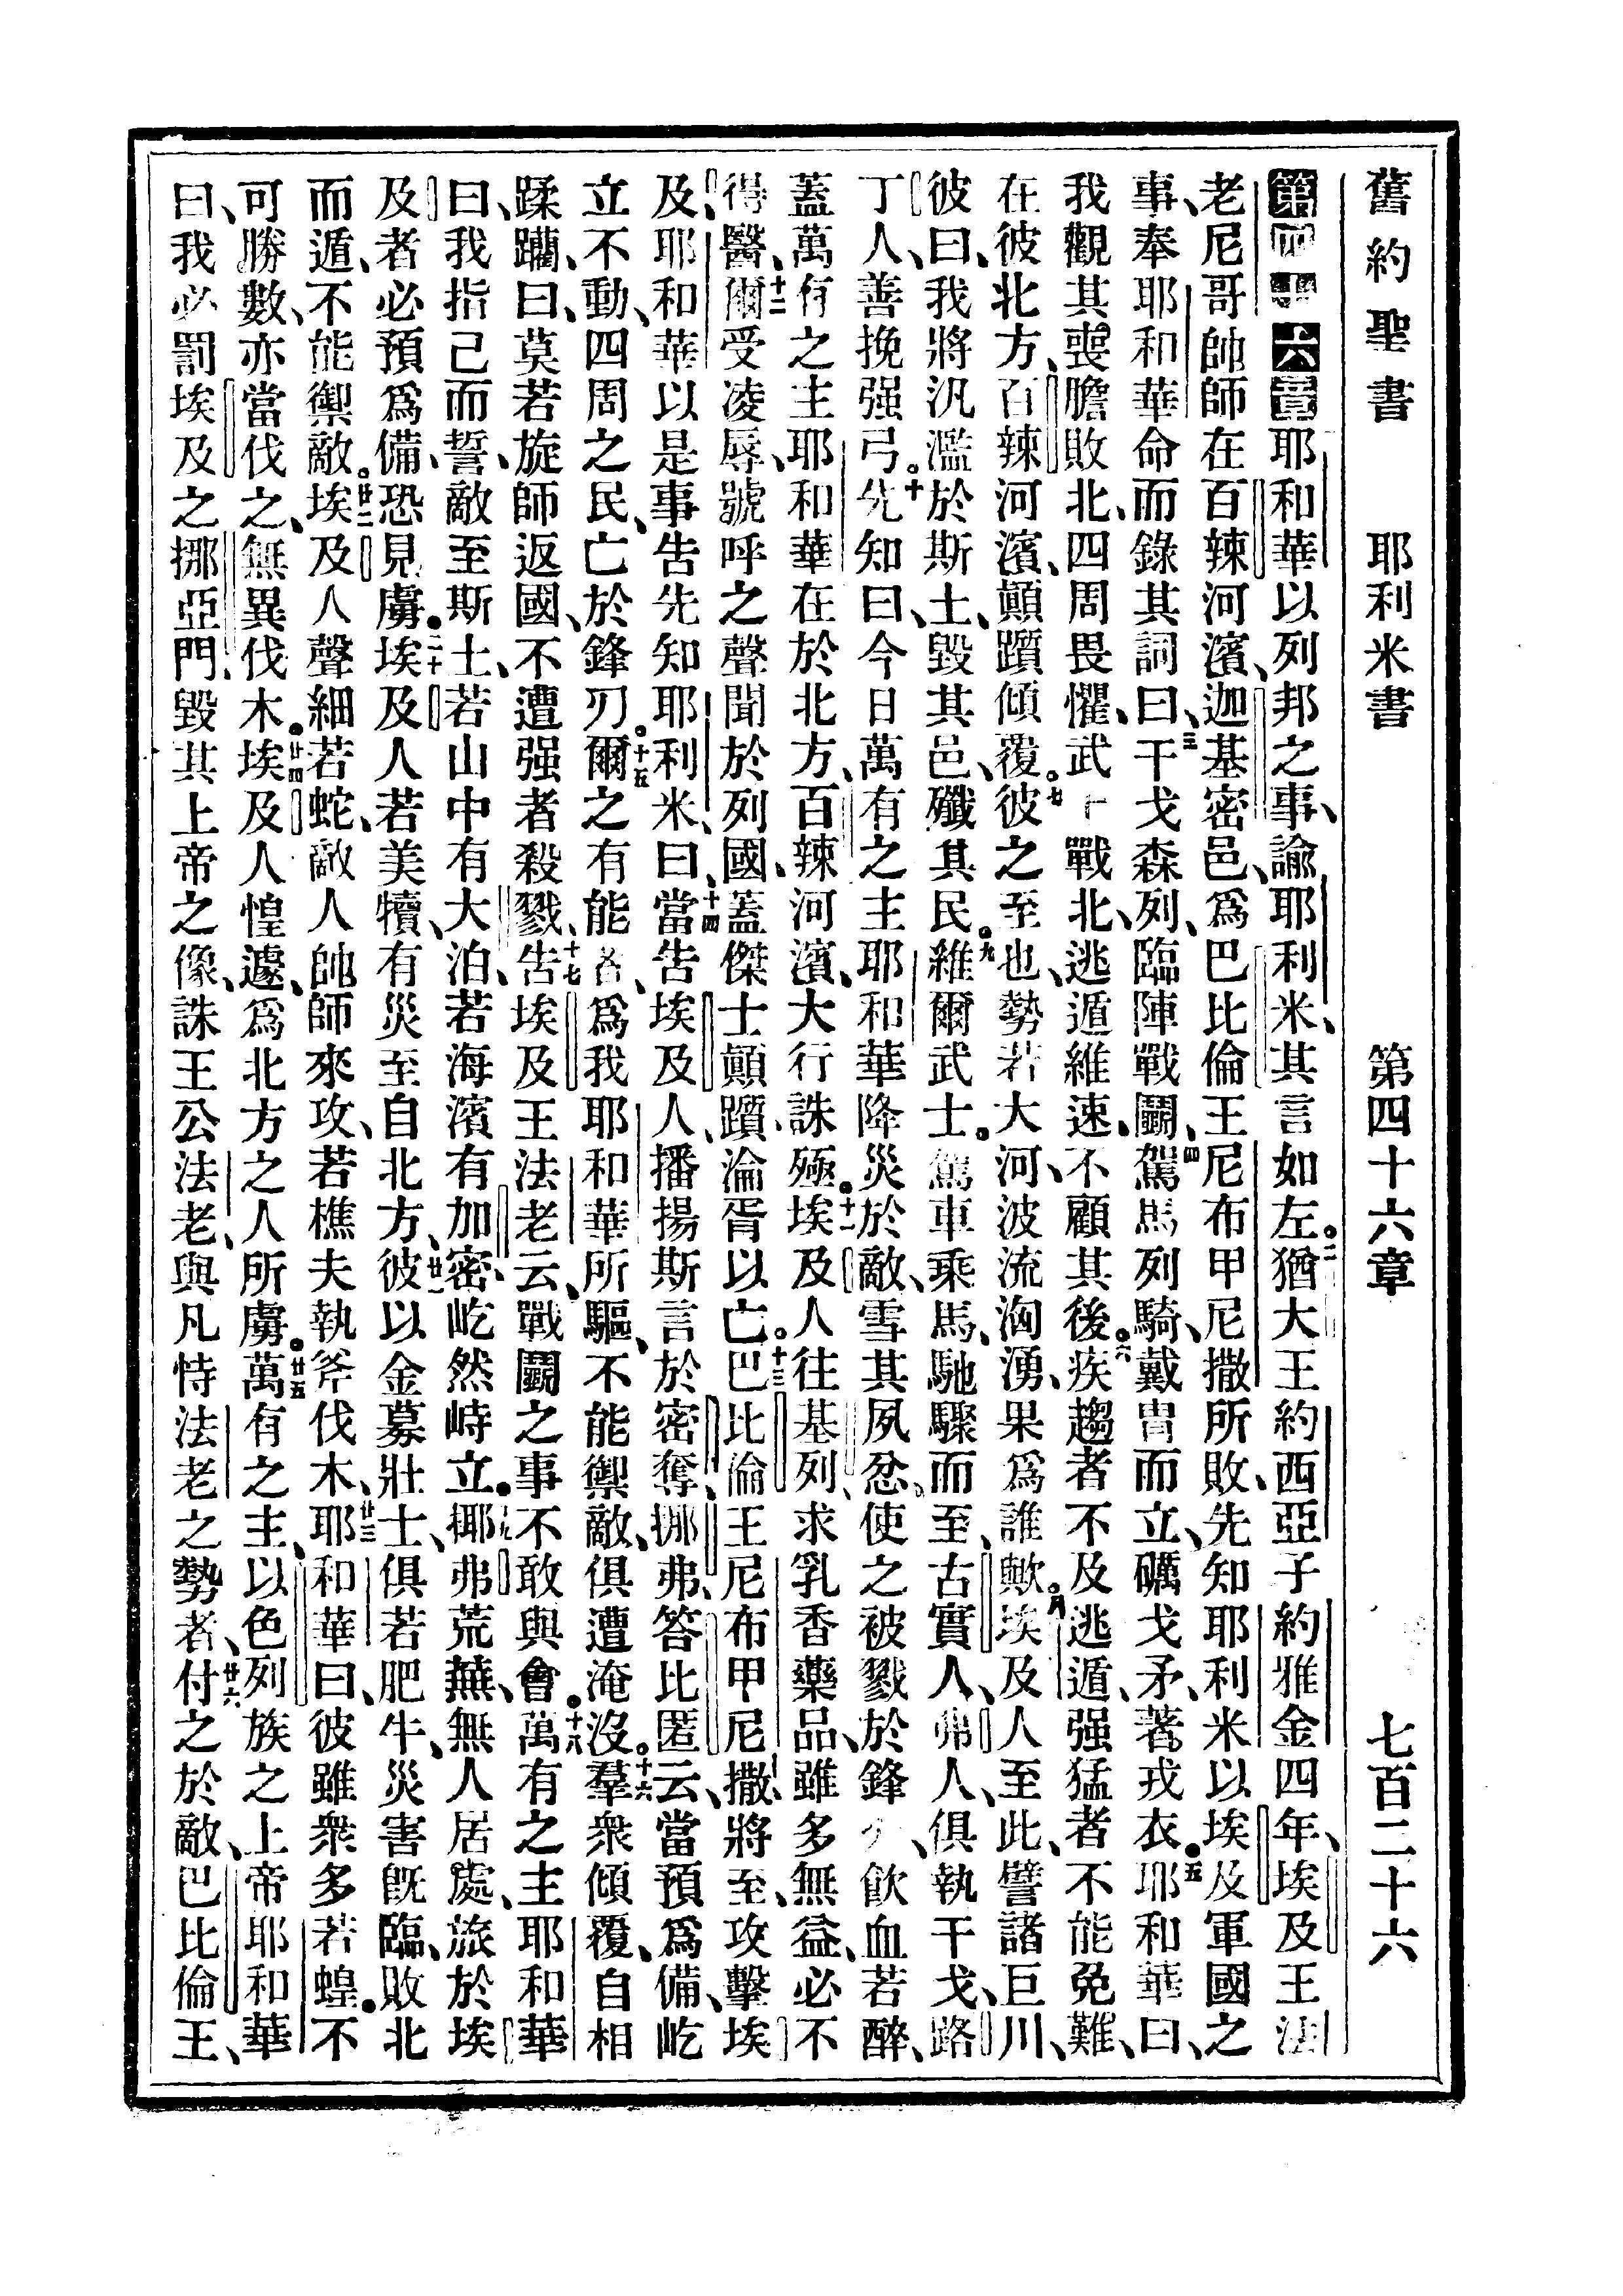 舊約聖書 耶利米書 第四十六章 七百二十六
第四十六章耶和華以列邦之事、諭耶利米、其言如左。二猶大王約西亞子約雅金四年、埃及王法
老尼哥帥師在百辣河濱、迦基密邑、爲巴比倫王尼布甲尼撒所敗、先知耶利米以埃及軍國之
事、奉耶和華命而錄其詞曰、三干戈森列、臨陣戰鬭、四駕馬列騎、戴冑而立、礪戈矛、著戎衣。五耶和華曰、
我觀其喪膽敗北、四周畏懼、武士戰北、逃遁維速、不顧其後。六疾趨者不及逃遁、强猛者不能免難、
在彼北方、百辣河濱、顚躓傾覆。七彼之至也、勢若大河、波流洶湧、果爲誰歟。八埃及人至此、譬諸巨川、
彼曰、我將汎濫於斯土、毀其邑、殲其民。九維爾武士。駕車乘馬、馳驟而至、古實人、弗人、俱執干戈、路
丁人、善挽强弓。十先知曰、今日萬有之主耶和華降災於敵、雪其夙忿、使之被戮於鋒刃、飮血若醉、
蓋萬有之主耶和華在於北方、百辣河濱、大行誅殛。十一埃及人往基列、求乳香藥品、雖多無益、必不
得醫、十二爾受凌辱、號呼之聲聞於列國、蓋傑士顚躓、淪胥以亡。十三巴比倫王尼布甲尼撒、將至、攻擊埃
及、耶和華以是事告先知耶利米、曰、十四當告埃及人、播揚斯言於密奪、挪弗、答比匿云、當預爲備、屹
立不動、四周之民、亡於鋒刃。十五爾之有能者、爲我耶和華所驅、不能禦敵、俱遭淹沒。十六羣衆傾覆、自相
蹂躪、曰、莫若旋師返國、不遭强者殺戮、十七告埃及王法老云、戰鬭之事不敢與會。十八萬有之主耶和華
曰、我指己而誓、敵至斯土、若山中有大泊、若海濱有加密、屹然峙立。十九挪弗荒蕪、無人居處、旅於埃
及者必預爲備、恐見虜。二十埃及人若美犢、有災至自北方、廿一彼以金募壯士、俱若肥牛、災害旣臨、敗北
而遁、不能禦敵。廿二埃及人聲細若蛇、敵人帥師來攻、若樵夫執斧伐木、廿三耶和華曰、彼雖衆多若蝗。不
可勝數、亦當伐之、無異伐木。廿四埃及人惶遽、爲北方之人所虜。廿五萬有之主、以色列族之上帝耶和華
曰、我必罰埃及之挪亞門、毀其上帝之像、誅王公法老、與凡恃法老之勢者、廿六付之於敵、巴比倫王、